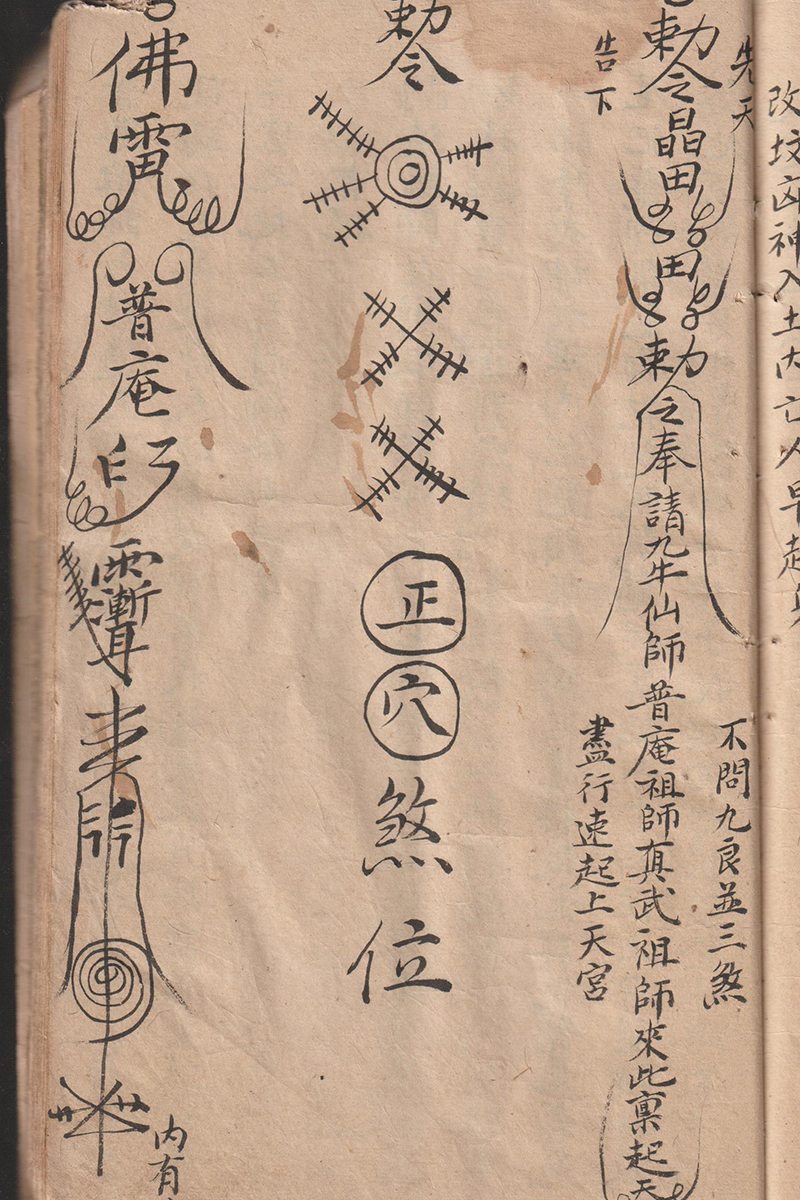 改坟凶神入土内亡人早起
先天
告下
勅令晶田田勅令奉請九牛仙師普庵祖師真武祖師來此禀起天
不問九良並三煞
盡行速起上天宮
勅令
正
穴
煞位
佛
普庵印
内有